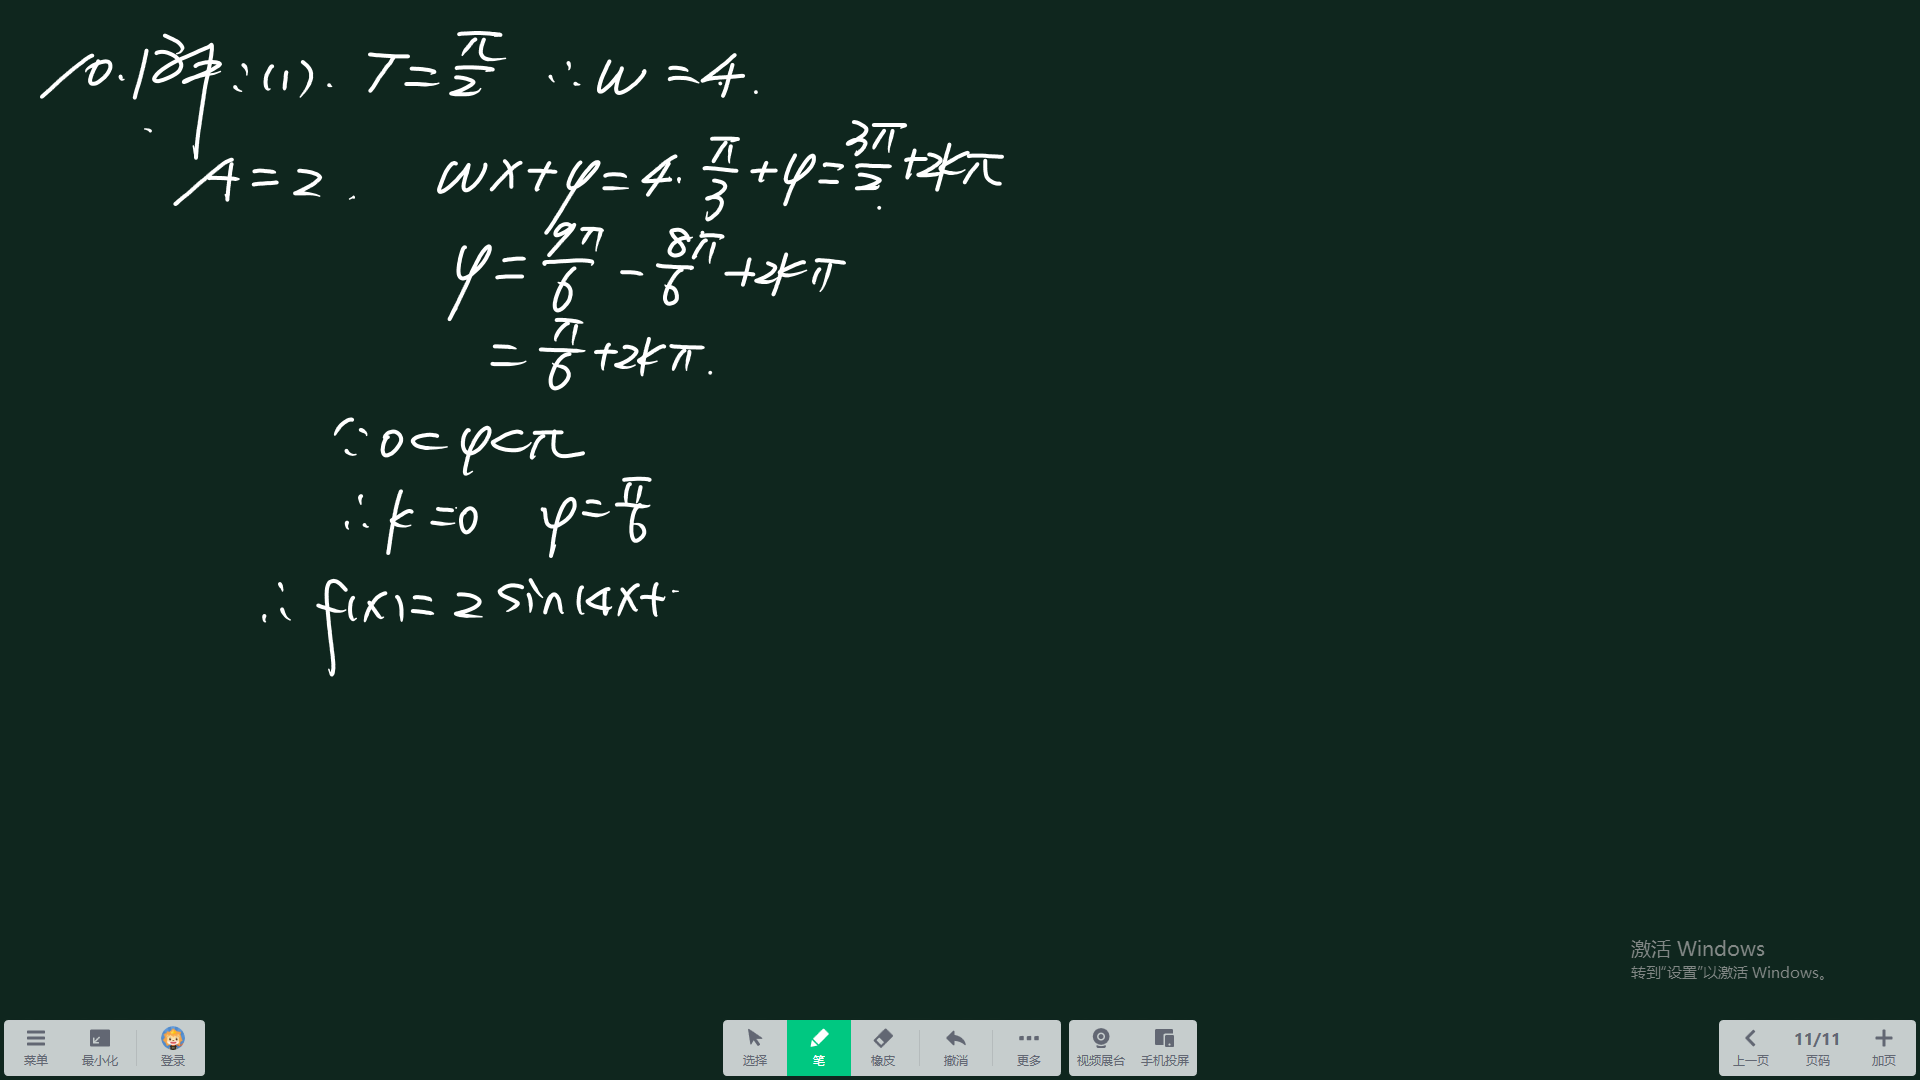 10.解:(1). T=π/2 ∴w=4.
A=2. wx+φ=4·π/3+φ=3π/2+2kπ
φ=9π/6-8π/6+2kπ
=π/6+2kπ.
∵0<φ<π
∴k=0 φ=π/6
∴f(x)=2sin(4x+
激活 Windows
转到“设置”以激活 Windows。
菜单 最小化 登录 选择 笔 橡皮 撤消 更多 视频展台 手机投屏 上一页 11/11 页码 加页